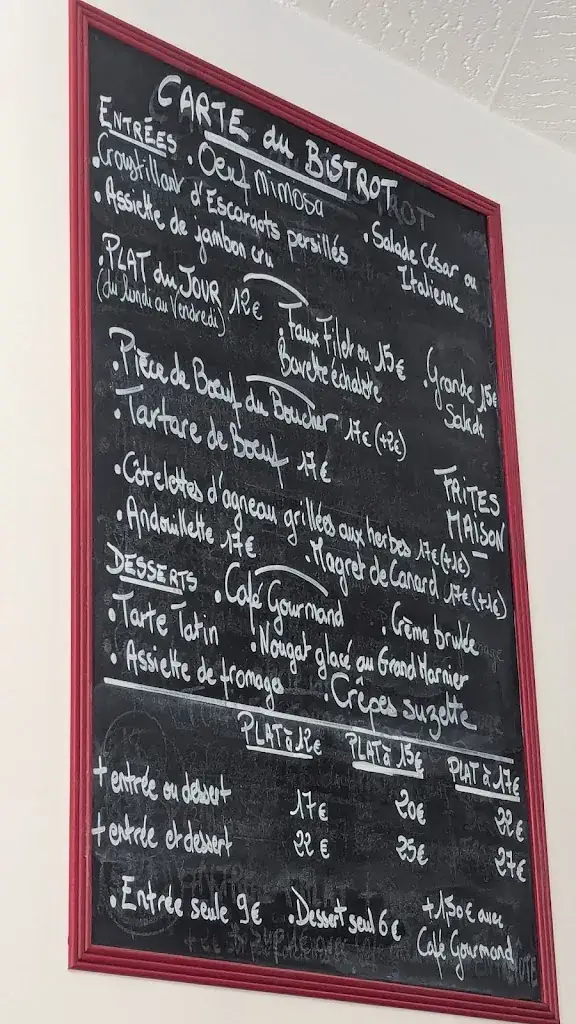 CARTE du BiSTROT
ENTRÉES . Oeuf mimosa
. Croustillant d'Escargots persillés
. Salade César ou
Italienne
. Assiette de jambon cru
. PLAT du JOUR 12€
(du lundi au Vendredi)
. Faux Filet ou 15€
Bavette échalote
. Grande 15€
Salade
. Pièce de Boeuf du Boucher 17€ (+2€)
. Tartare de Boeuf 17€
FRITES
MAISON
. Côtelettes d'agneau grillées aux herbes 17€ (+1€)
. Andouillette 17€ . Magret de Canard 17€ (+1€)
DESSERTS . Café Gourmand . Crème brulée
. Tarte Tatin . Nougat glacé au Grand Marnier
. Assiette de fromage . Crêpes suzette
PLAT à 12€ PLAT à 15€ PLAT à 17€
+ entrée ou dessert 17€ 20€ 22€
+ entrée et dessert 22€ 25€ 27€
. Entrée seule 9€ . Dessert seul 6€ +1,50€ avec
Café Gourmand